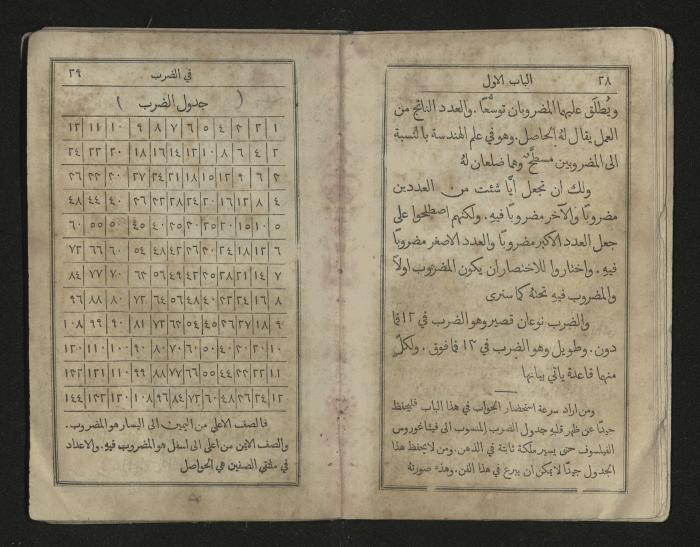 ٢٨ الباب الاول
ويُطلَق عليهما المضروبان توسُّعًا. والعدد الناتج من
العمل يقال لهُ الحاصل. وهو في علم الهندسة بالنسبة
الى المضروبين مسطَّح وهما ضلعان لهُ
ولك ان تجعل ايًّا شئت من العددين
مضروبًا والآخر مضروبًا فيهِ. ولكنهم اصطلحوا على
جعل العدد الاكبر مضروبًا والعدد الاصغر مضروبًا
فيهِ. واختاروا للاختصار ان يكون المضروب اولًا
والمضروب فيهِ تحتهُ كما سترى
والضرب نوعان قصير وهو الضرب في ١٢ فما
دون. وطويل وهو الضرب في ١٢ فما فوق. ولكلٍّ
منها قاعدة ياتي بيانها
ومن اراد سرعة استحضار الجواب في هذا الباب فليحفظ
جيدًا عن ظهر قلبهِ جدول الضرب المنسوب الى فيثاغوروس
الفيلسوف حتى يصير ملكة ثابتة في الذهن. ومن لا يحفظ هذا
الجدول جيدًا لا يمكن ان يبرع في هذا الفن. وهذه صورتهُ
في الضرب ٢٩
( جدول الضرب )
١ ٢ ٣ ٤ ٥ ٦ ٧ ٨ ٩ ١٠ ١١ ١٢
٢ ٤ ٦ ٨ ١٠ ١٢ ١٤ ١٦ ١٨ ٢٠ ٢٢ ٢٤
٣ ٦ ٩ ١٢ ١٥ ١٨ ٢١ ٢٤ ٢٧ ٣٠ ٣٣ ٣٦
٤ ٨ ١٢ ١٦ ٢٠ ٢٤ ٢٨ ٣٢ ٣٦ ٤٠ ٤٤ ٤٨
٥ ١٠ ١٥ ٢٠ ٢٥ ٣٠ ٣٥ ٤٠ ٤٥ ٥٠ ٥٥ ٦٠
٦ ١٢ ١٨ ٢٤ ٣٠ ٣٦ ٤٢ ٤٨ ٥٤ ٦٠ ٦٦ ٧٢
٧ ١٤ ٢١ ٢٨ ٣٥ ٤٢ ٤٩ ٥٦ ٦٣ ٧٠ ٧٧ ٨٤
٨ ١٦ ٢٤ ٣٢ ٤٠ ٤٨ ٥٦ ٦٤ ٧٢ ٨٠ ٨٨ ٩٦
٩ ١٨ ٢٧ ٣٦ ٤٥ ٥٤ ٦٣ ٧٢ ٨١ ٩٠ ٩٩ ١٠٨
١٠ ٢٠ ٣٠ ٤٠ ٥٠ ٦٠ ٧٠ ٨٠ ٩٠ ١٠٠ ١١٠ ١٢٠
١١ ٢٢ ٣٣ ٤٤ ٥٥ ٦٦ ٧٧ ٨٨ ٩٩ ١١٠ ١٢١ ١٣٢
١٢ ٢٤ ٣٦ ٤٨ ٦٠ ٧٢ ٨٤ ٩٦ ١٠٨ ١٢٠ ١٣٢ ١٤٤
فالصف الاعلى من اليمين الى اليسار هو المضروب.
والصف الايمن من اعلى الى اسفل هو المضروب فيهِ. والاعداد
في ملتقى الصفين هي الحواصل